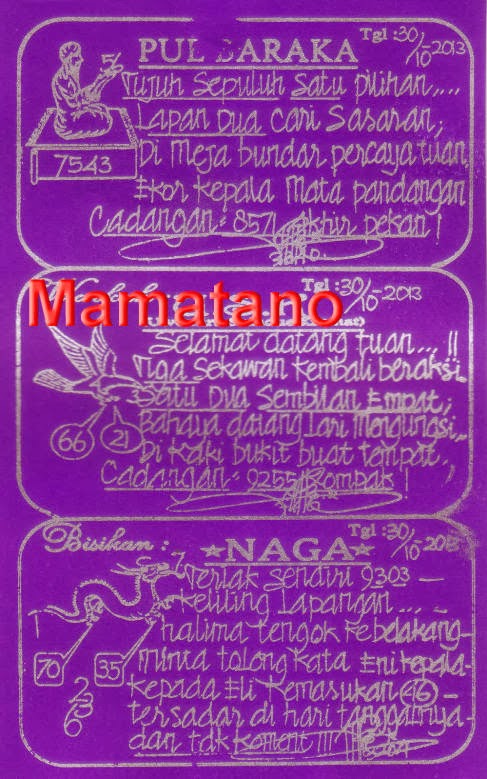 PUL BARAKA
Tgl :30/10-2013
Tujuh Sepuluh Satu pilihan,...
Lapan Dua Cari Sasaran;
7543
Di Meja bundar percaya tuan,
Ekor kepala Mata pandangan
Cadangan : 8571 akhir pekan !
Mamatano
Tgl :30/10-2013
Selamat datang tuan... !!
Tiga Sekawan Kembali beraksi..
Satu Dua Sembilan Empat;
66 21
Bahaya datang lari Mengungsi,,
Di Kaki bukit buat tempat
Cadangan : 9255 Kompak !
Bisikan :
NAGA
Tgl :30/10-2013
Teriak Sendiri 9303 —
Keliling Lapangan ... —
halima tengok Kebelakang—
70 35
Minta tolong Kata Eni kepala-
kepada Eli Kemasukan 96 —
tersadar di hari tanggamya-
dan tdk Koment !!!